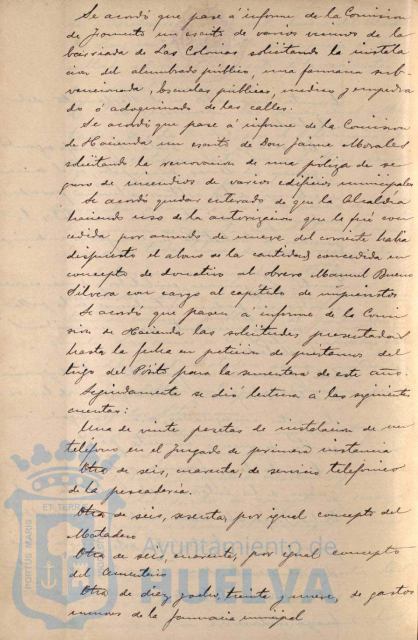 Se acordó que pase á informe de la Comision
de Fomento un escrito de varios vecinos de la
barriada de Las Colonias solicitando la instala
cion del alumbrado público, una farmacia sub-
vencionada, Escuelas públicas, médico y empedra
do ó adoquinado de las calles.
Se acordó que pase á informe de la Comision
de Hacienda un escrito de Don Jaime Morales
solicitando la renovacion de una póliza de se
guro de incendios de varios edificios municipales
Se acordó quedar enterado de que la Alcaldía
haciendo uso de la autorizacion que le fué con
cedida por acuerdo de nueve del corriente habia
dispuesto el abono de la cantidad concedida en
concepto de donativo al obrero Manuel Bueno
Silvera con cargo al capítulo de imprevistos
Se acordó que pasen á informe de la Comi
sion de Hacienda las solicitudes presentadas
hasta la fecha en peticion de préstamos del
trigo del Pósito para la sementera de este año.
Seguidamente se dió lectura á las siguientes
cuentas:
Una de veinte pesetas de instalacion de un
teléfono en el Juzgado de primera instancia
Otra de seis, cuarenta, de servicio telefónico
de la pescadería.
Otra de seis, sesenta, por igual concepto del
Matadero
Otra de seis, cuarenta, por igual concepto
del Cementerio
Otra de diez y ocho, treinta y nueve, de gastos
menores de la farmacia municipal
PORTUS MARIS
ET TERRÆ
Ayuntamiento de
HUELVA